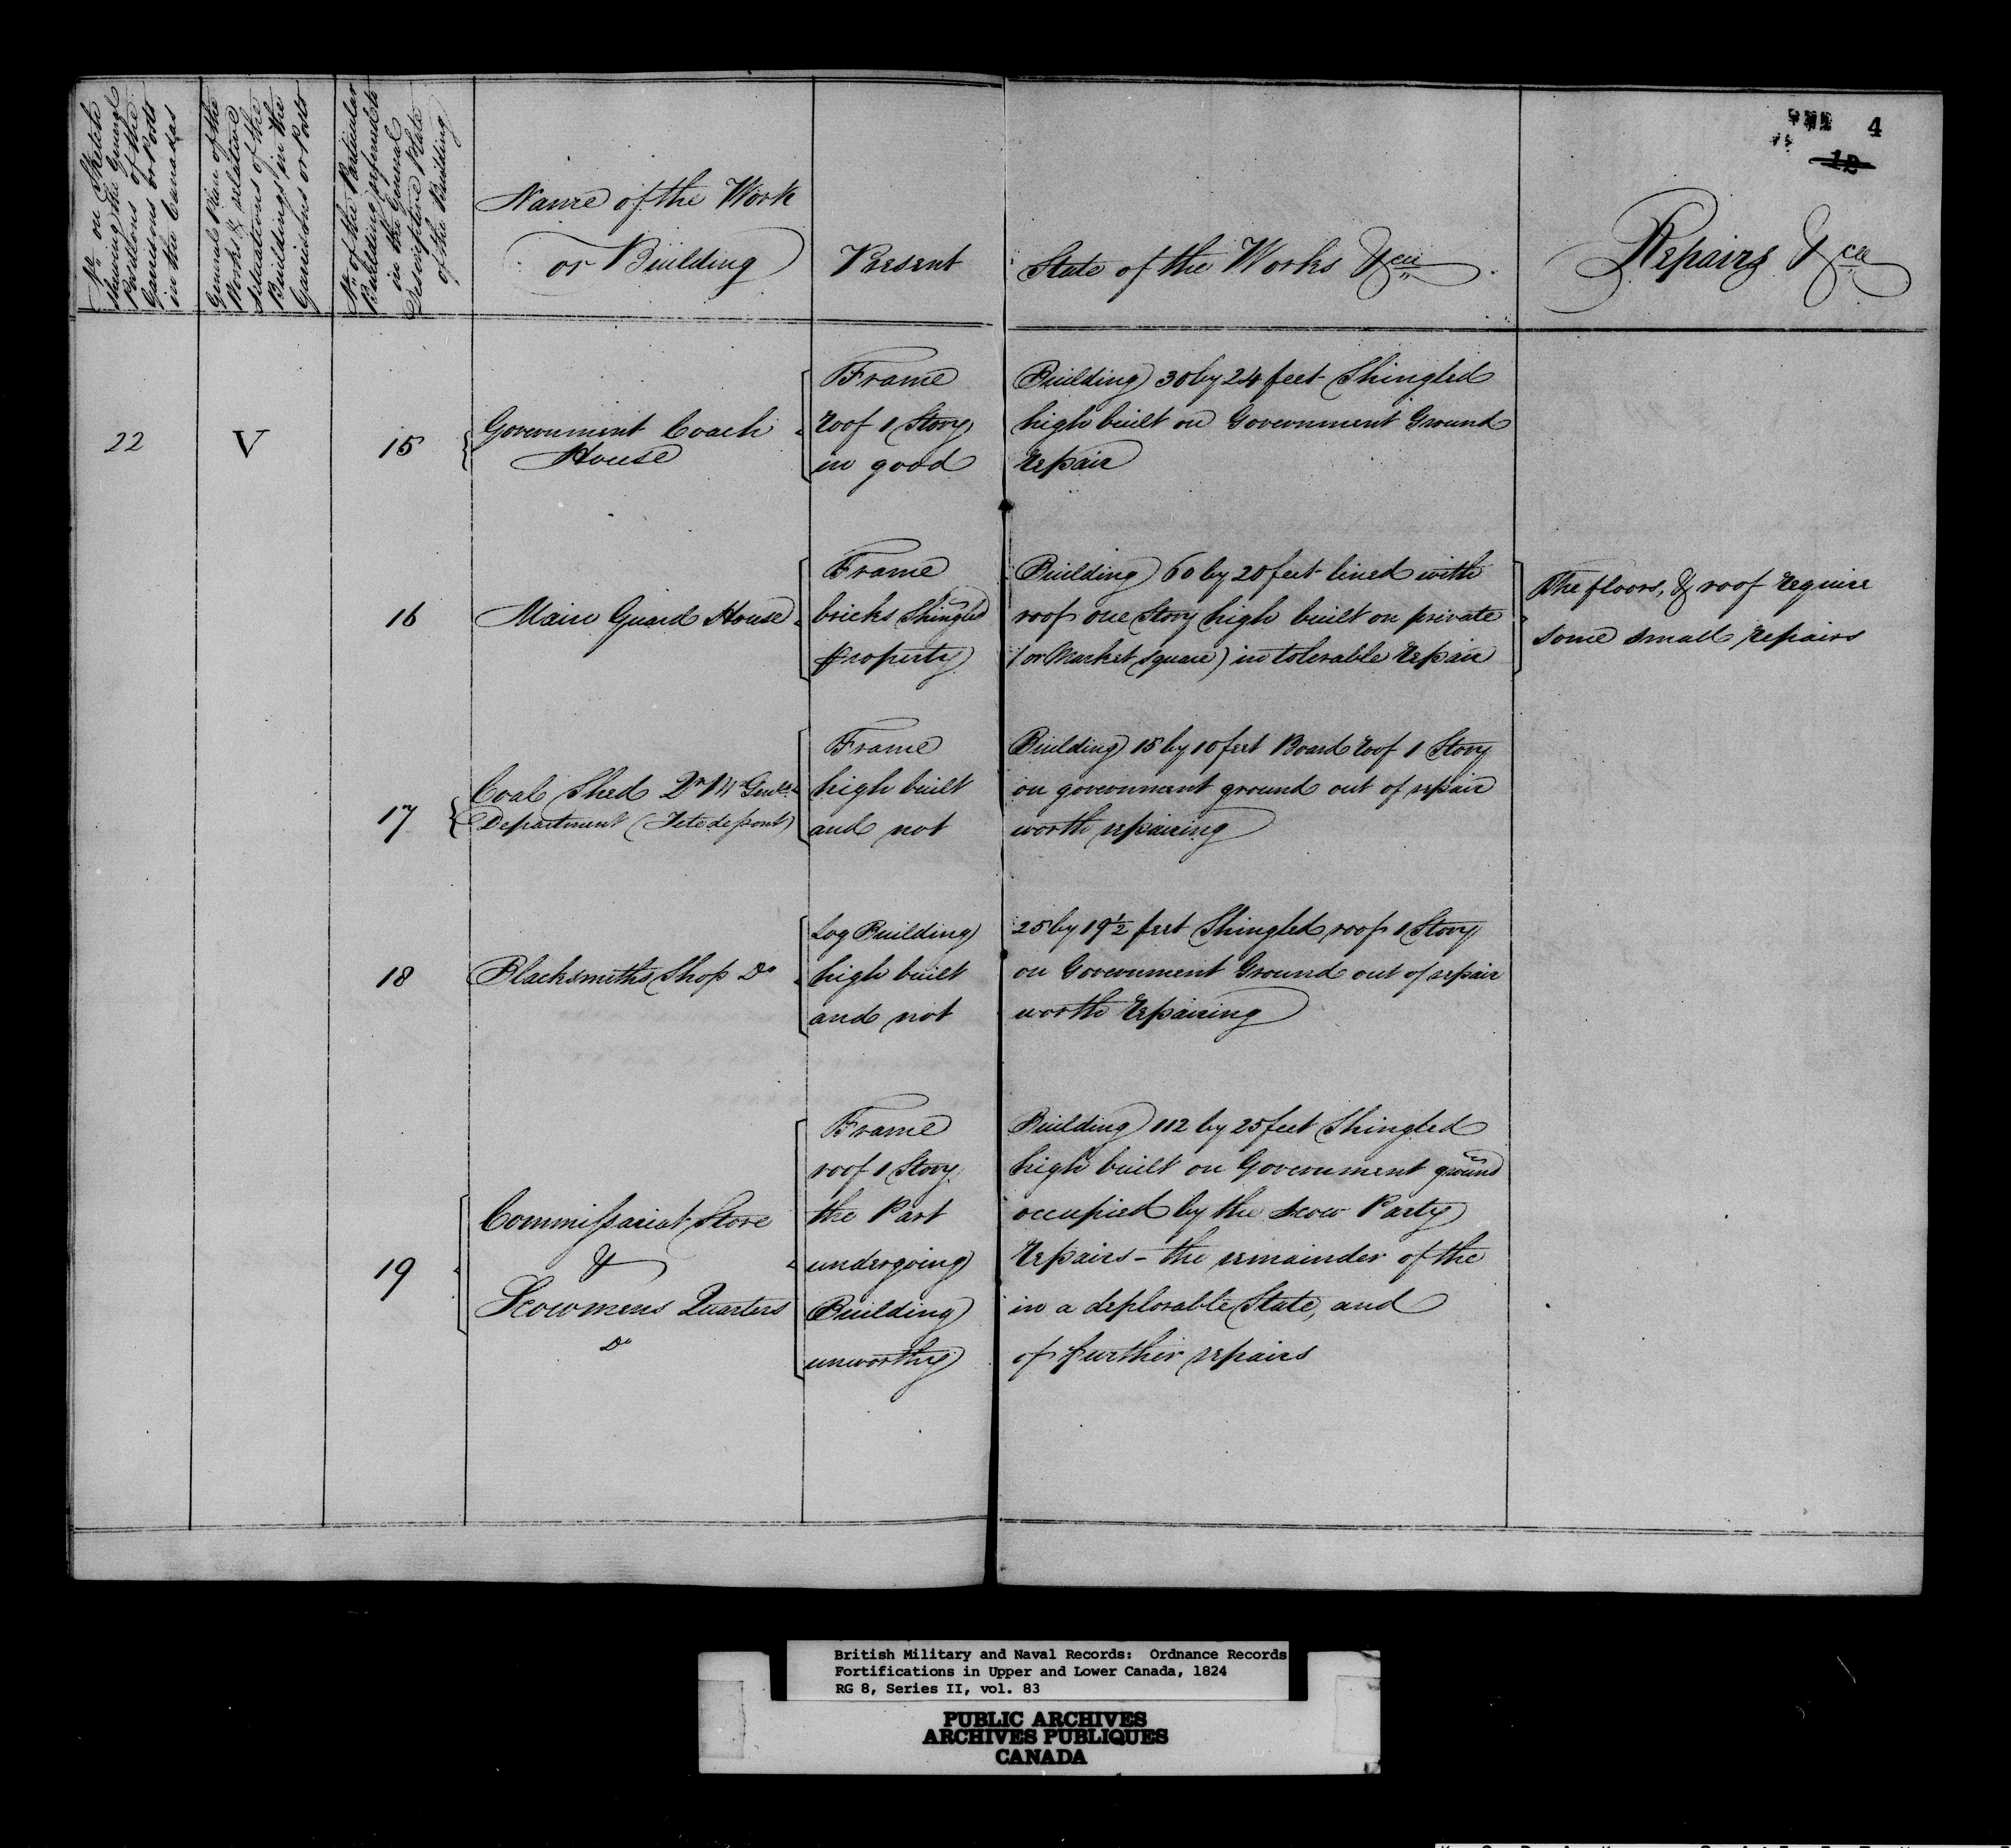 4
12
No on Sketch
showing the General
Positions of the
Garrisons or Posts
in the Canadas
General Plan of the
Works & relative
Situations of the
Buildings in the
Garrisons or Posts
No of the Particular
Building referred to
in the General
Descriptive Plate
of the Building
Name of the Work
or Building
Present State of the Works &ca
Repairs &ca
22 V 15 Government Coach
House
Frame Building 30 by 24 feet Shingled
roof 1 Story high built on Government Ground
in good repair
16 Main Guard House
Frame Building 60 by 20 feet lined with
bricks Shingled roof one Story high built on private
property (or Market Square) in tolerable repair
The floors, & roof require
some small repairs
17 Coal Shed Qr Mr Genls
Department (Tete de pont)
Frame Building 15 by 10 feet Board roof 1 Story
high built on government ground out of repair
and not worth repairing
18 Blacksmiths Shop Do
Log Building 25 by 19½ feet Shingled roof 1 Story
high built on Government Ground out of repair
and not worth repairing
19 Commissariat Store
&
Scowmens Quarters
Do
Frame Building 112 by 25 feet Shingled
roof 1 Story high built on Government ground
the Part occupied by the Scow Party
undergoing repairs - the remainder of the
Building in a deplorable State, and
unworthy of further repairs
British Military and Naval Records: Ordnance Records
Fortifications in Upper and Lower Canada, 1824
RG 8, Series II, vol. 83
PUBLIC ARCHIVES
ARCHIVES PUBLIQUES
CANADA